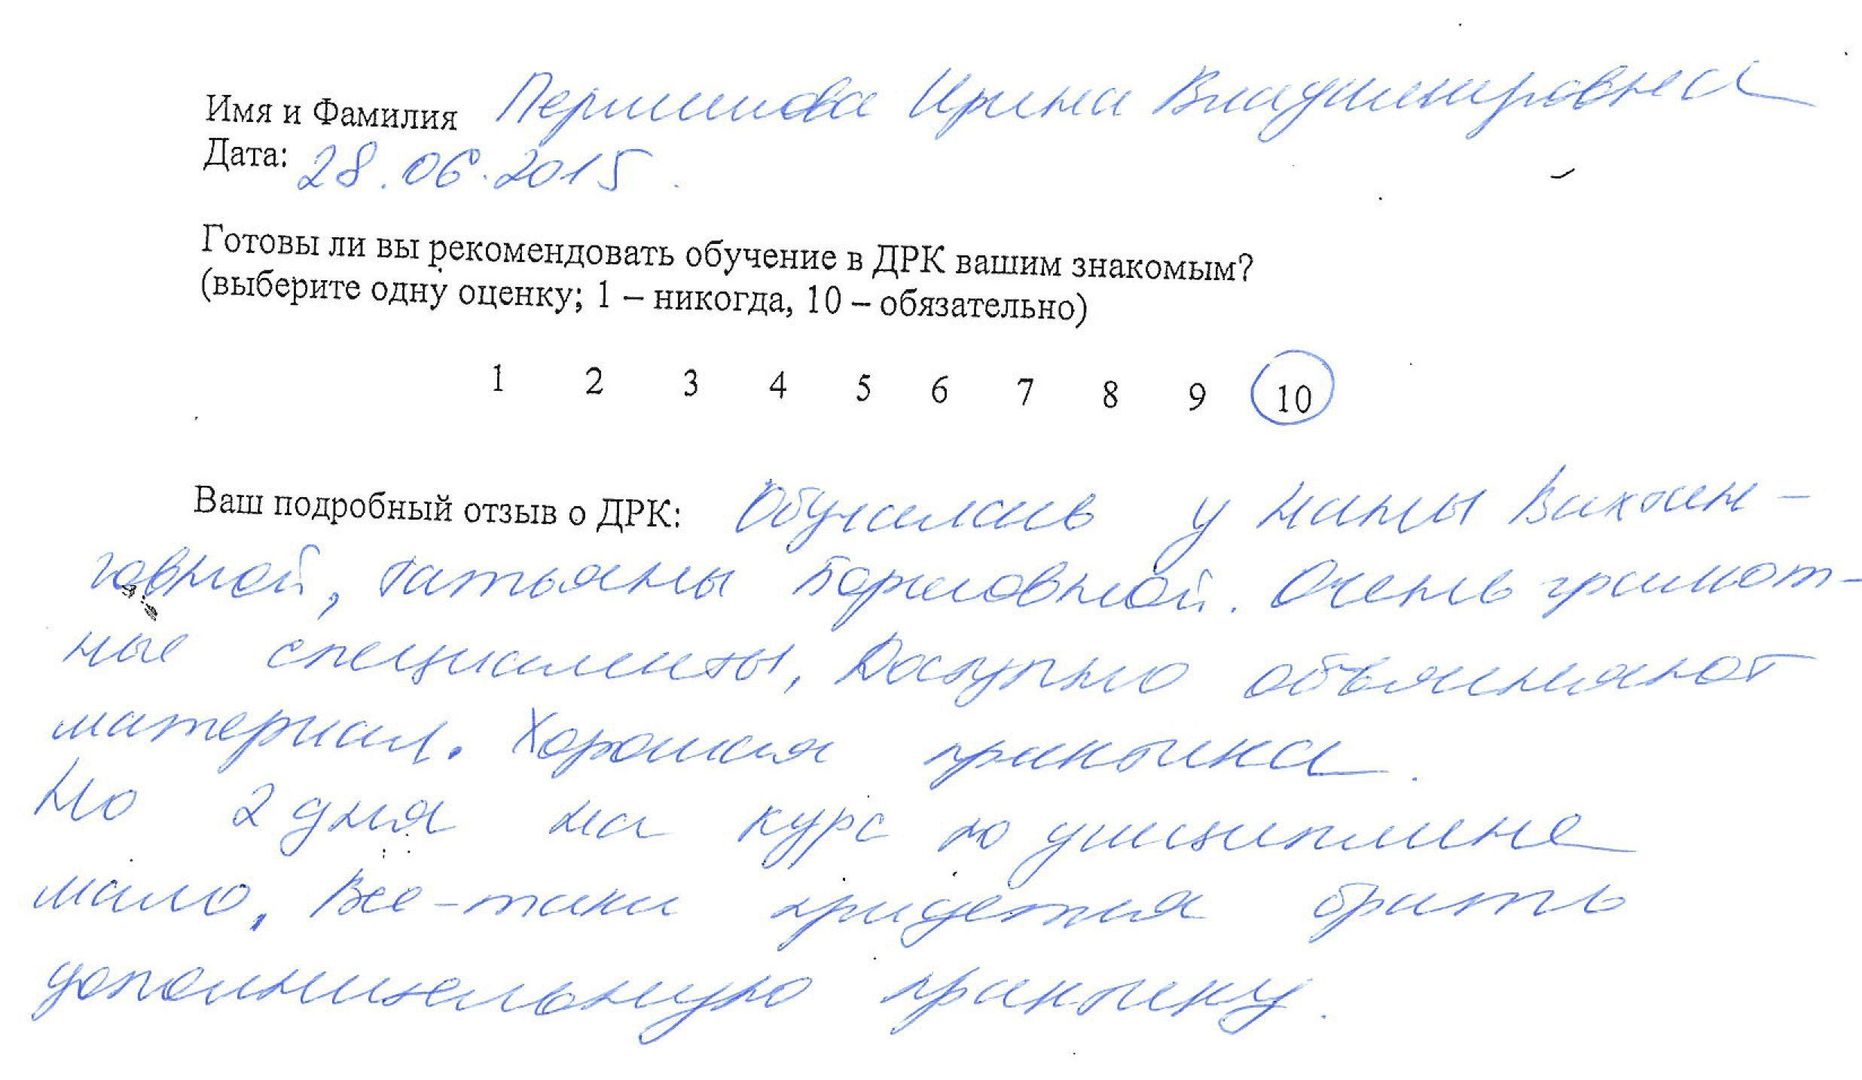 Имя и Фамилия Першикова Ирина Владимировна
Дата: 28.06.2015.
Готовы ли вы рекомендовать обучение в ДРК вашим знакомым?
(выберите одну оценку; 1 – никогда, 10 – обязательно)
1 2 3 4 5 6 7 8 9 10
Ваш подробный отзыв о ДРК: Обучалась у Наны Вахтан-
говной, Татьяны Борисовной. Очень грамот-
ные специалисты, Доступно объясняют
материал. Хорошая практика.
Но 2 дня на курс по дисциплине
мало. Все-таки придется брать
дополнительную практику.